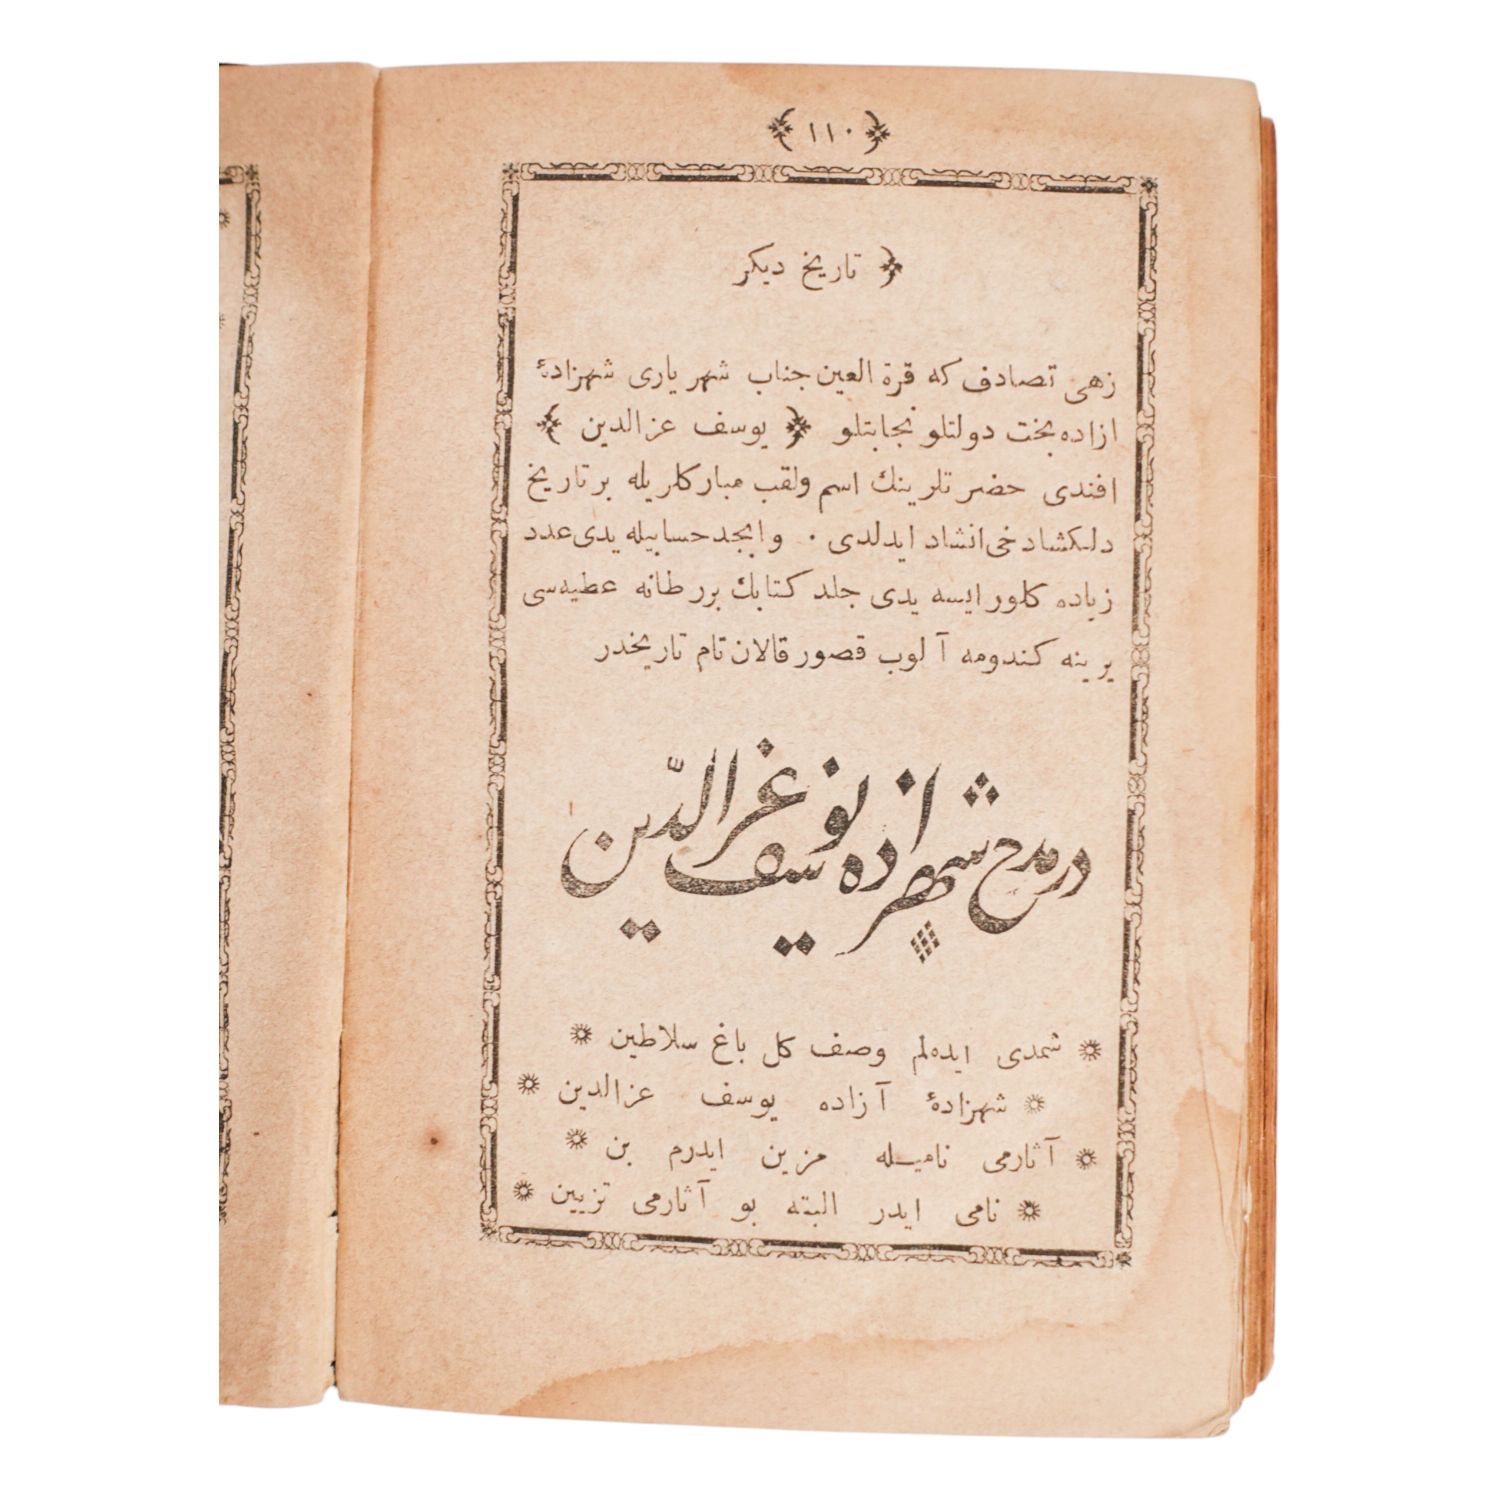 ﴿ ١١٠ ﴾
﴿ تاریخ دیکر
زهی تصادف که قرة العین جناب شهریاری شهزادهٔ
ازاده بخت دولتلو نجابتلو ﴿ یوسف عزالدین ﴾
افندی حضرتلرینك اسم ولقب مبارکلریله برتاریخ
دلکشادخی انشاد ایدلدی . وابجد حسابیله یدی عدد
زیاده کلور ایسه یدی جلد کتابك بررطانه عطیه‌سی
یرینه کندومه آلوب قصور قالان تام تاریخدر
درمدح شهزاده یوسف عزالدّین
شمدی ایده‌لم وصف کل باغ سلاطین
شهزادهٔ آزاده یوسف عزالدین
آثارمی نامیله مزین ایدرم بن
نامی ایدر البته بو آثارمی تزیین